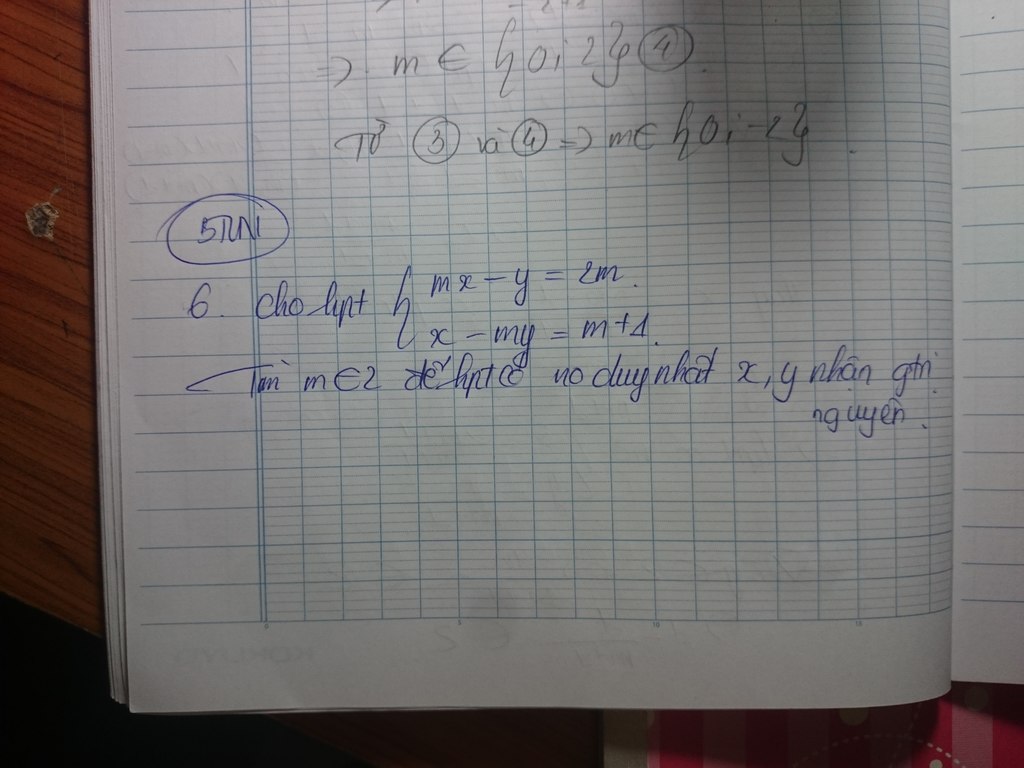 => m ∈ {0; 2} ④.
Từ ③ và ④ => m ∈ {0; -2}.
BTVN
6. Cho hpt { mx - y = 2m.
x - my = m + 1.
Tìm m ∈ Z để hpt có no duy nhất x, y nhận gtrị
nguyên.